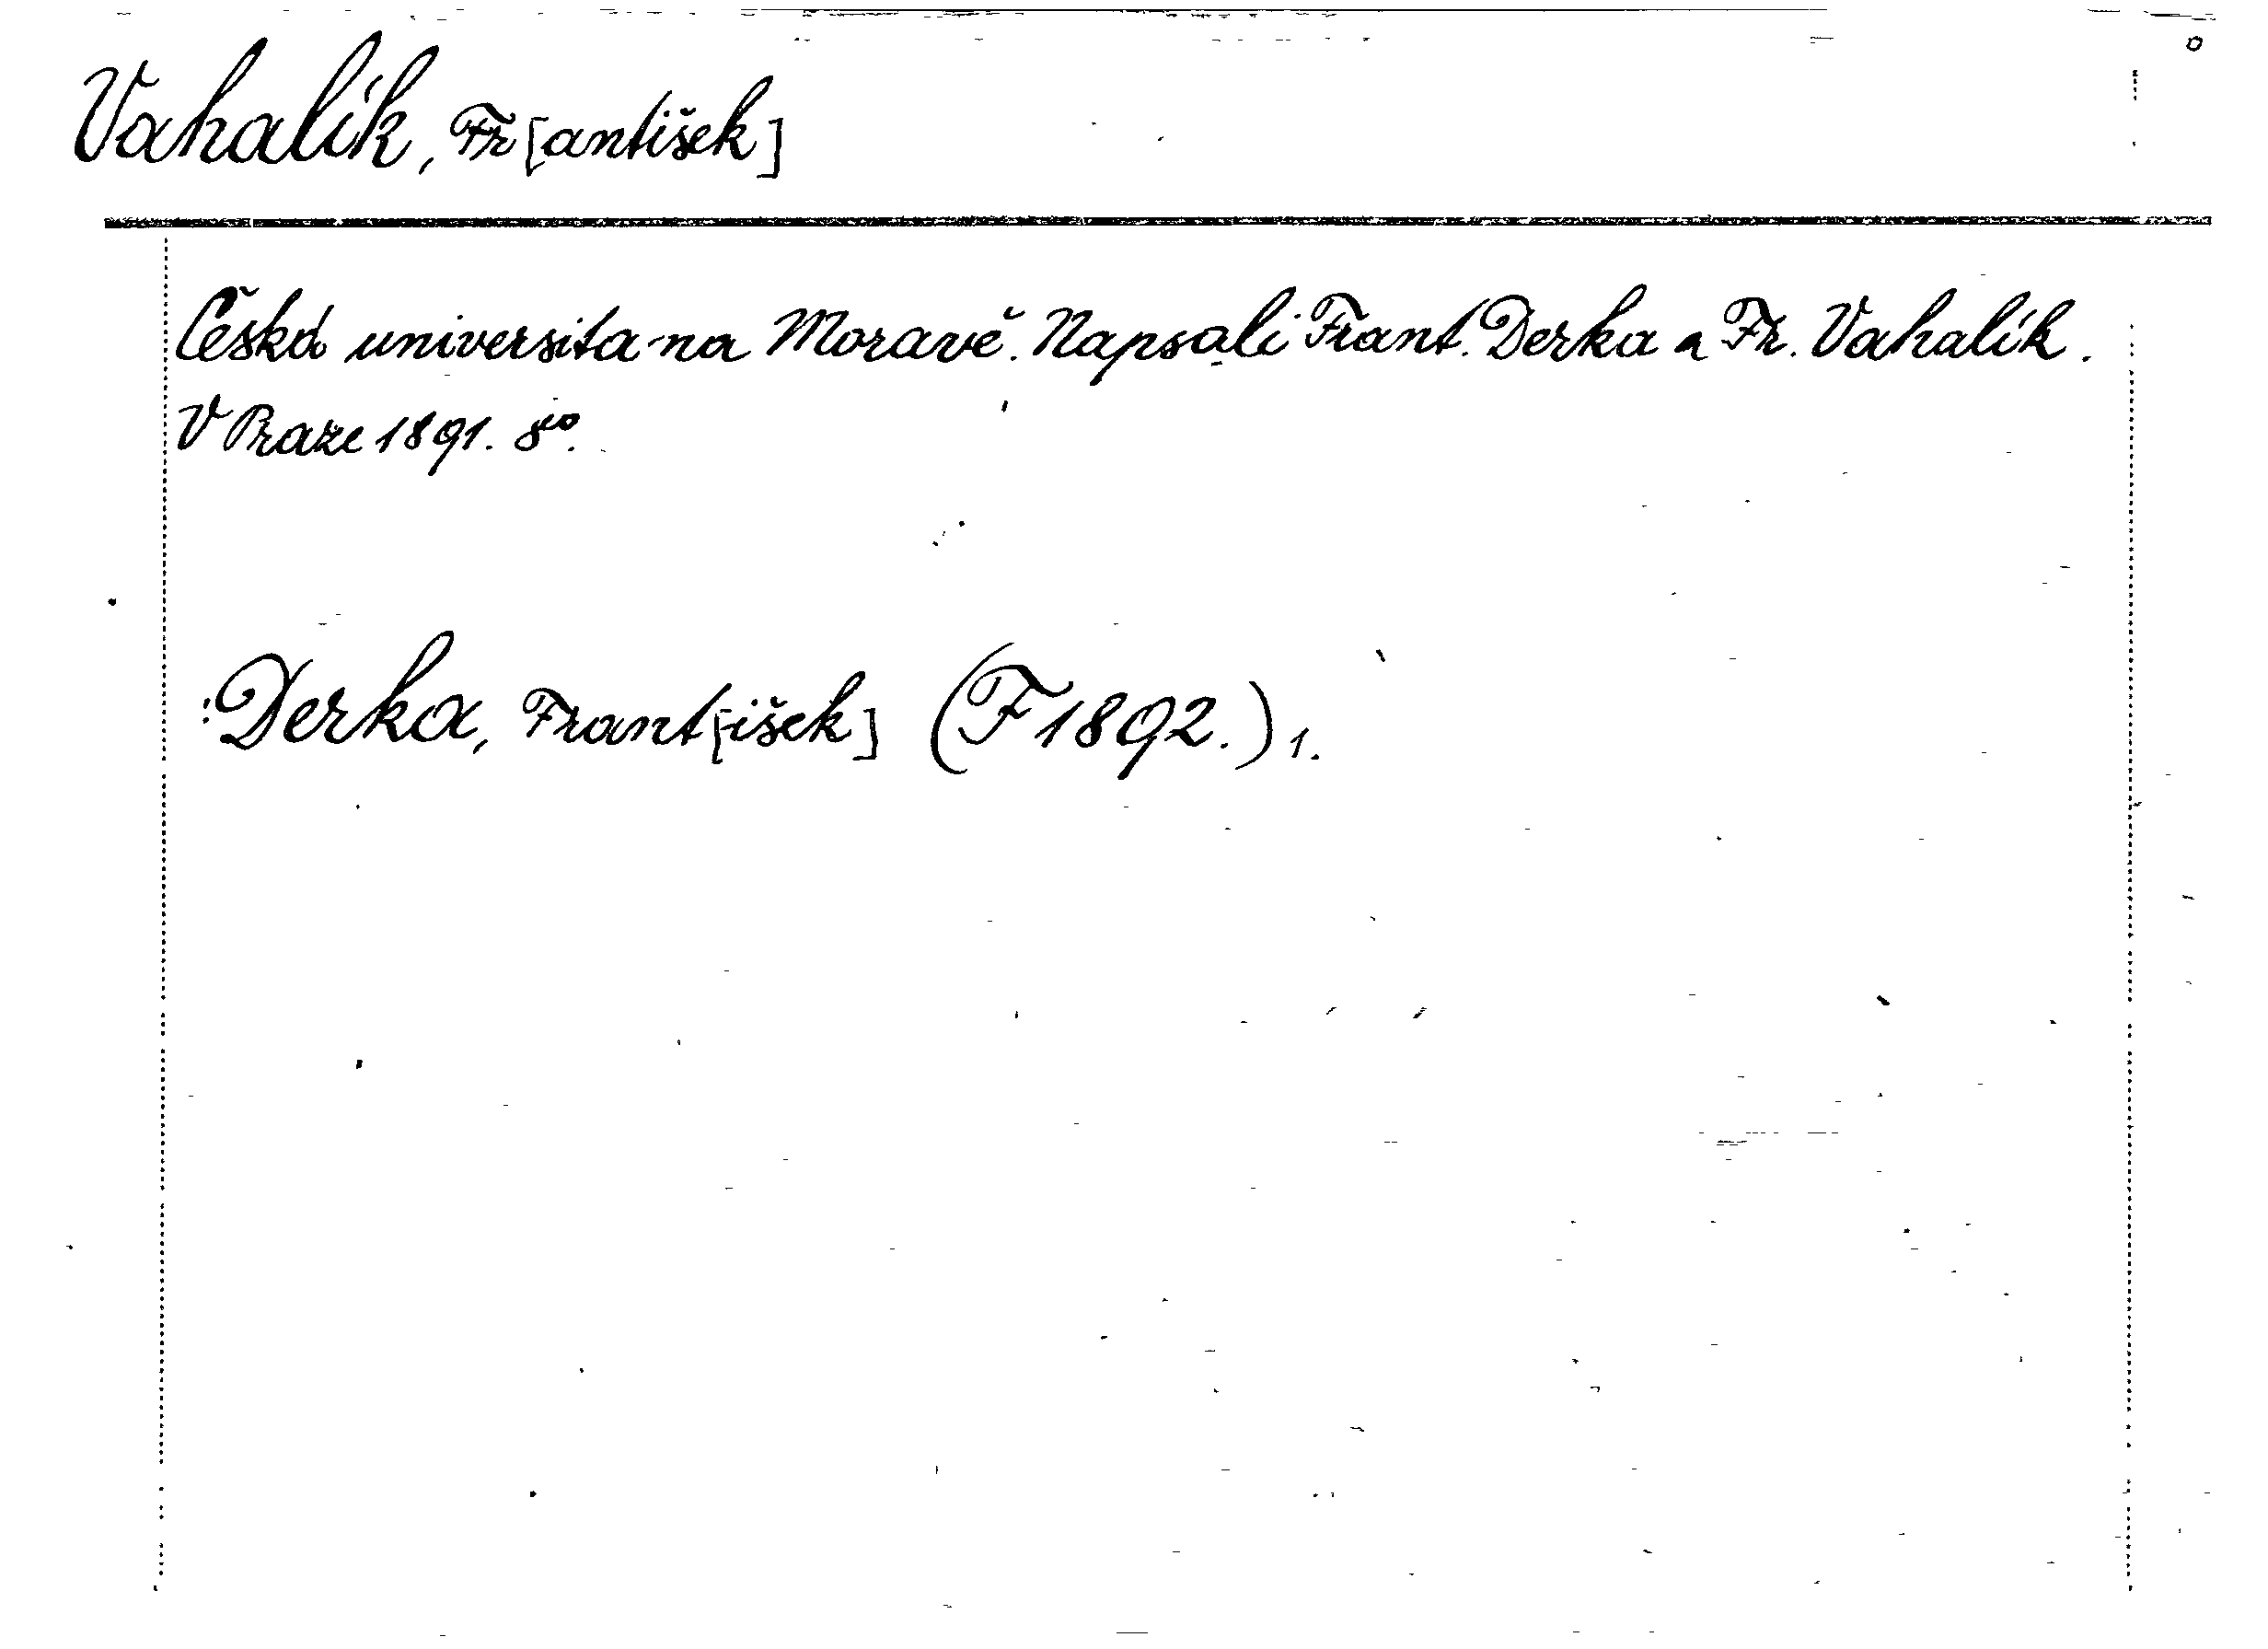 Vahalík, Fr[antišek]
Česká universita na Moravě. Napsali Frant. Derka a Fr. Vahalík.
V Praze 1891. 8º.
:Derka, Frant[išek] (F 1892.) 1.